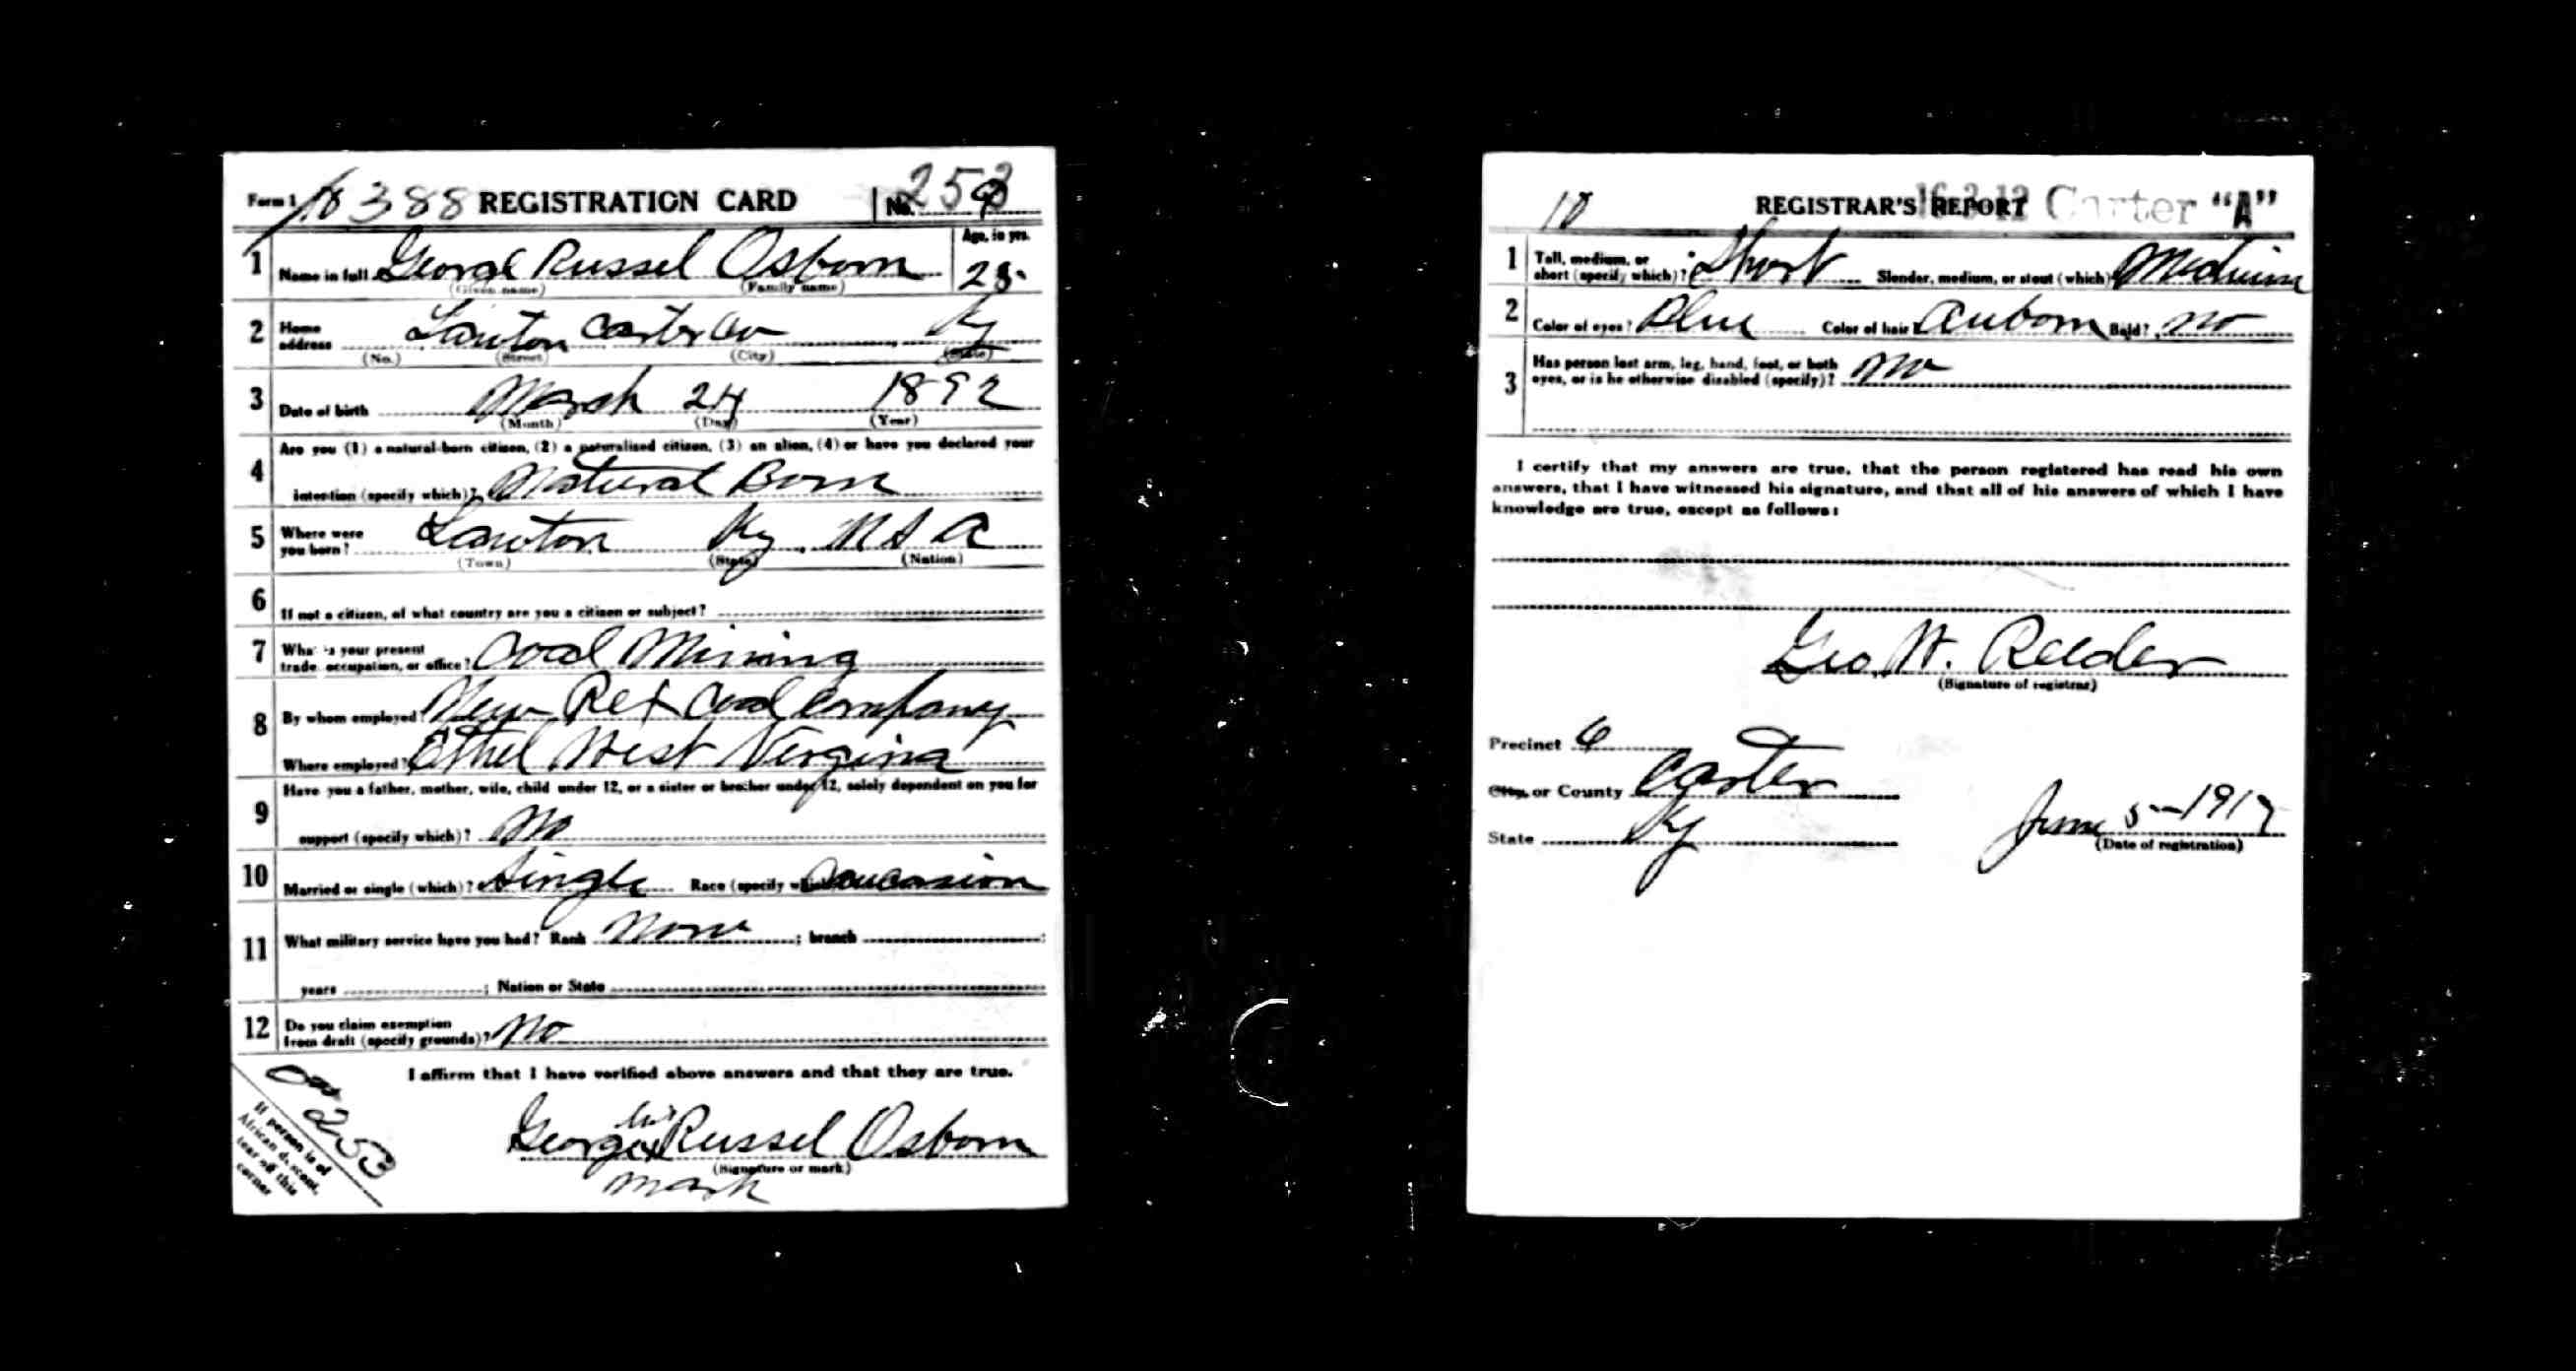 Form 1 388 REGISTRATION CARD No. 253
1 Name in full George Russel Osborn Age, in yrs. 25
(Given name) (Family name)
2 Home address Lawton Carter Co Ky
(No.) (Street) (City) (State)
3 Date of birth March 24 1892
(Month) (Day) (Year)
4 Are you (1) a natural-born citizen, (2) a naturalized citizen, (3) an alien, (4) or have you declared your
intention (specify which)? Natural Born
5 Where were you born? Lawton Ky. U S A
(Town) (State) (Nation)
6 If not a citizen, of what country are you a citizen or subject?
7 What is your present
trade, occupation, or office? Coal Mining
8 By whom employed? New Rex Coal Company
Where employed? Ethel West Vergina
9 Have you a father, mother, wife, child under 12, or a sister or brother under 12, solely dependent on you for
support (specify which)? No
10 Married or single (which)? Single Race (specify which)? Caucasion
11 What military service have you had? Rank None ; branch ;
years ; Nation or State
12 Do you claim exemption
from draft (specify grounds)? No
I affirm that I have verified above answers and that they are true.
his
George x Russel Osborn
(Signature or mark)
mark
253
If person is of
African descent,
tear off this
corner
10 REGISTRAR'S REPORT 16-3-12 Carter "A"
1 Tall, medium, or
short (specify which)? Short Slender, medium, or stout (which)? Medium
2 Color of eyes? Blue Color of hair? Auborn Bald? no
3 Has person lost arm, leg, hand, foot, or both
eyes, or is he otherwise disabled (specify)? No
I certify that my answers are true, that the person registered has read his own
answers, that I have witnessed his signature, and that all of his answers of which I have
knowledge are true, except as follows:
Geo. W. Reeder
(Signature of registrar)
Precinct 6
City or County Carter
State Ky
June 5-1917
(Date of registration)